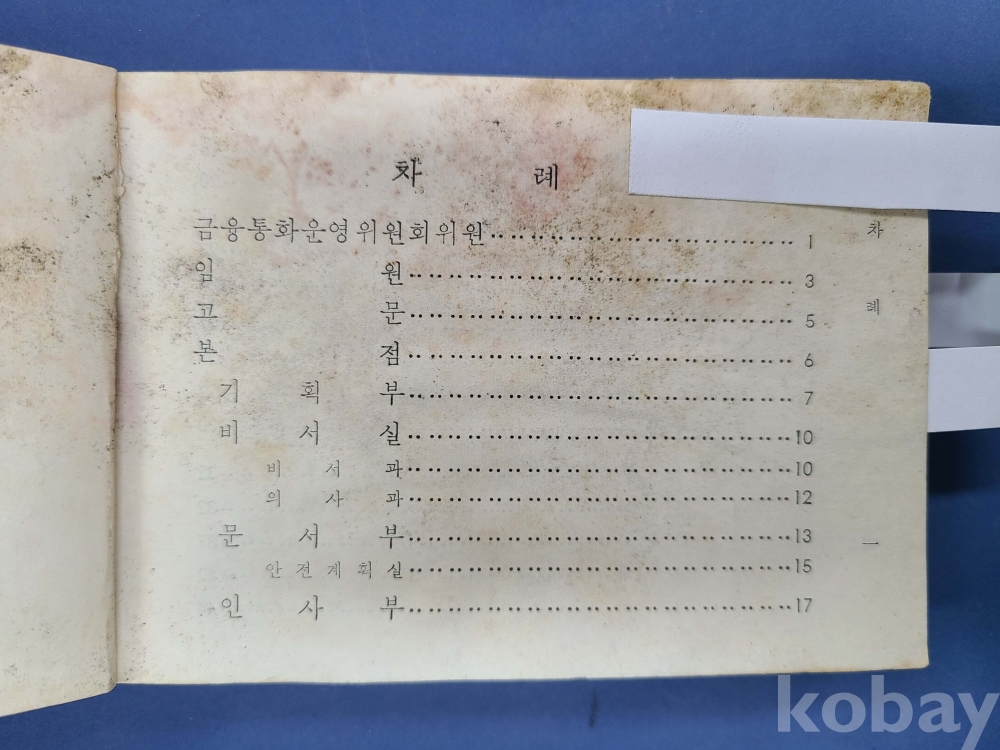 차 례
금융통화운영위원회위원 1
임 원 3
고 문 5
본 점 6
기 획 부 7
비 서 실 10
비 서 과 10
의 사 과 12
문 서 부 13
안 전 계 획 실 15
인 사 부 17
차 례 一
kobay